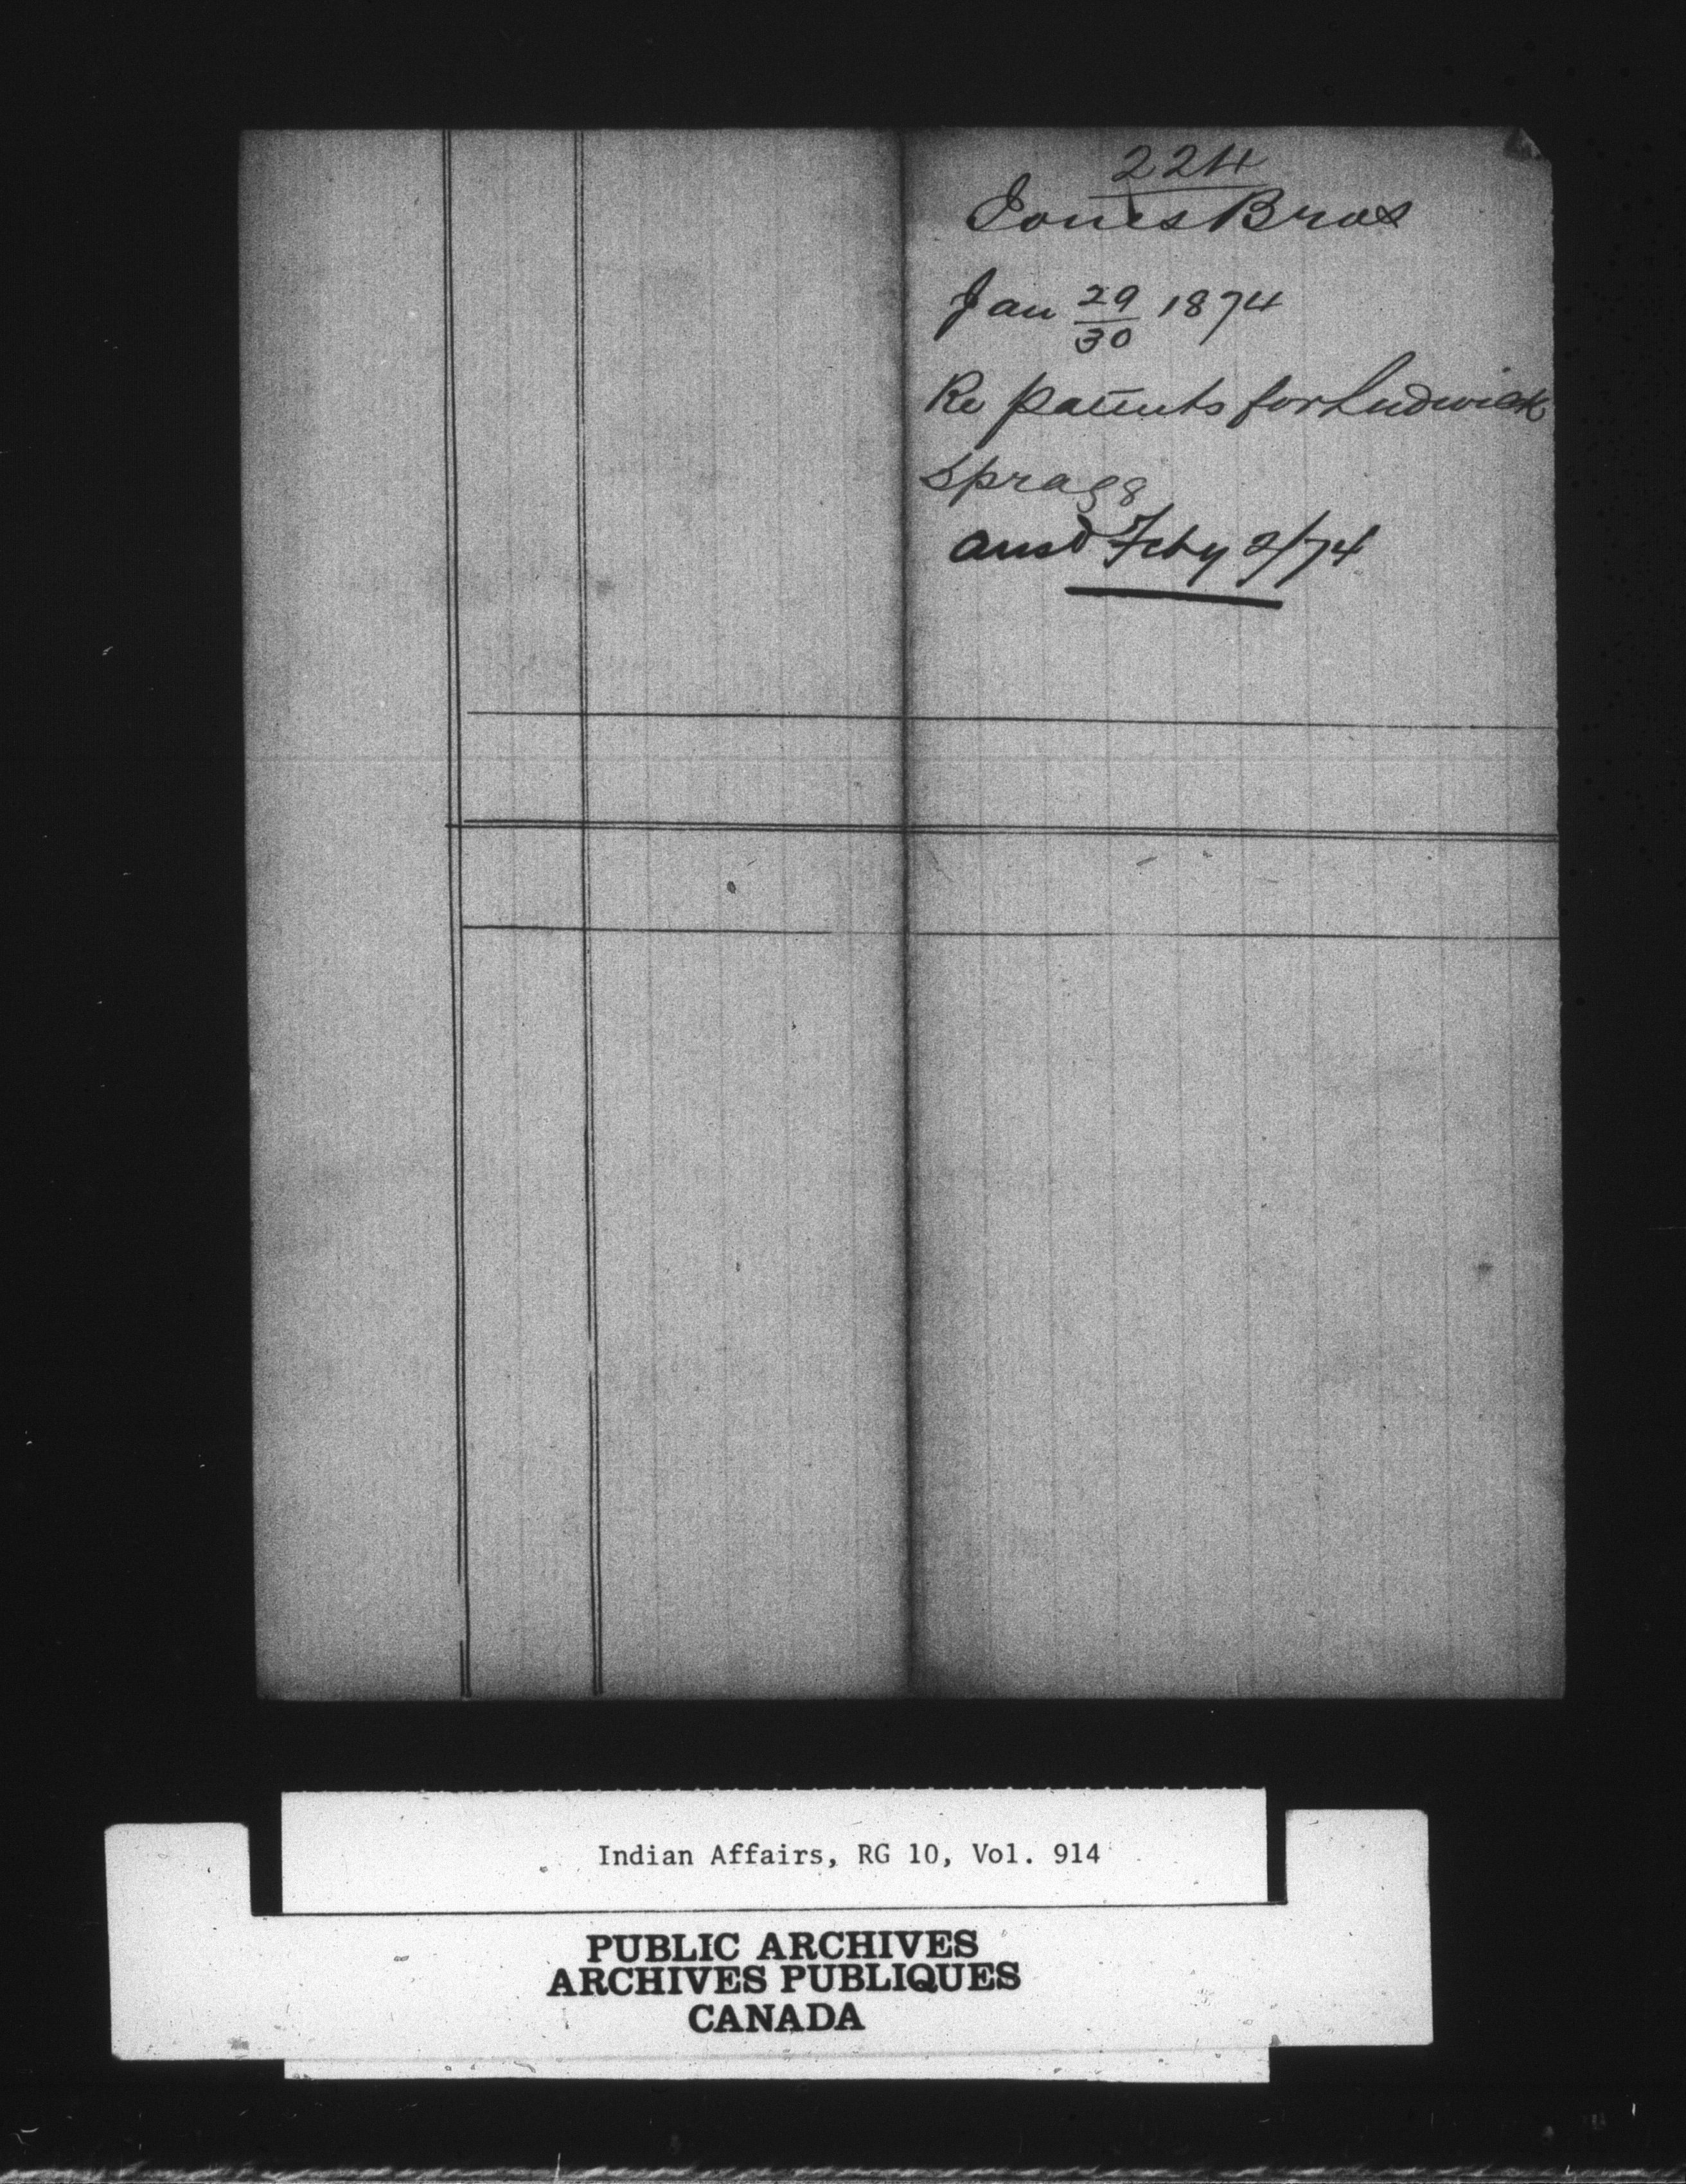 224
Jones Bros
Jan 29/30 1874
Re patents for Ludwick
Spragg
ansd Feby 2/74
Indian Affairs, RG 10, Vol. 914
PUBLIC ARCHIVES
ARCHIVES PUBLIQUES
CANADA